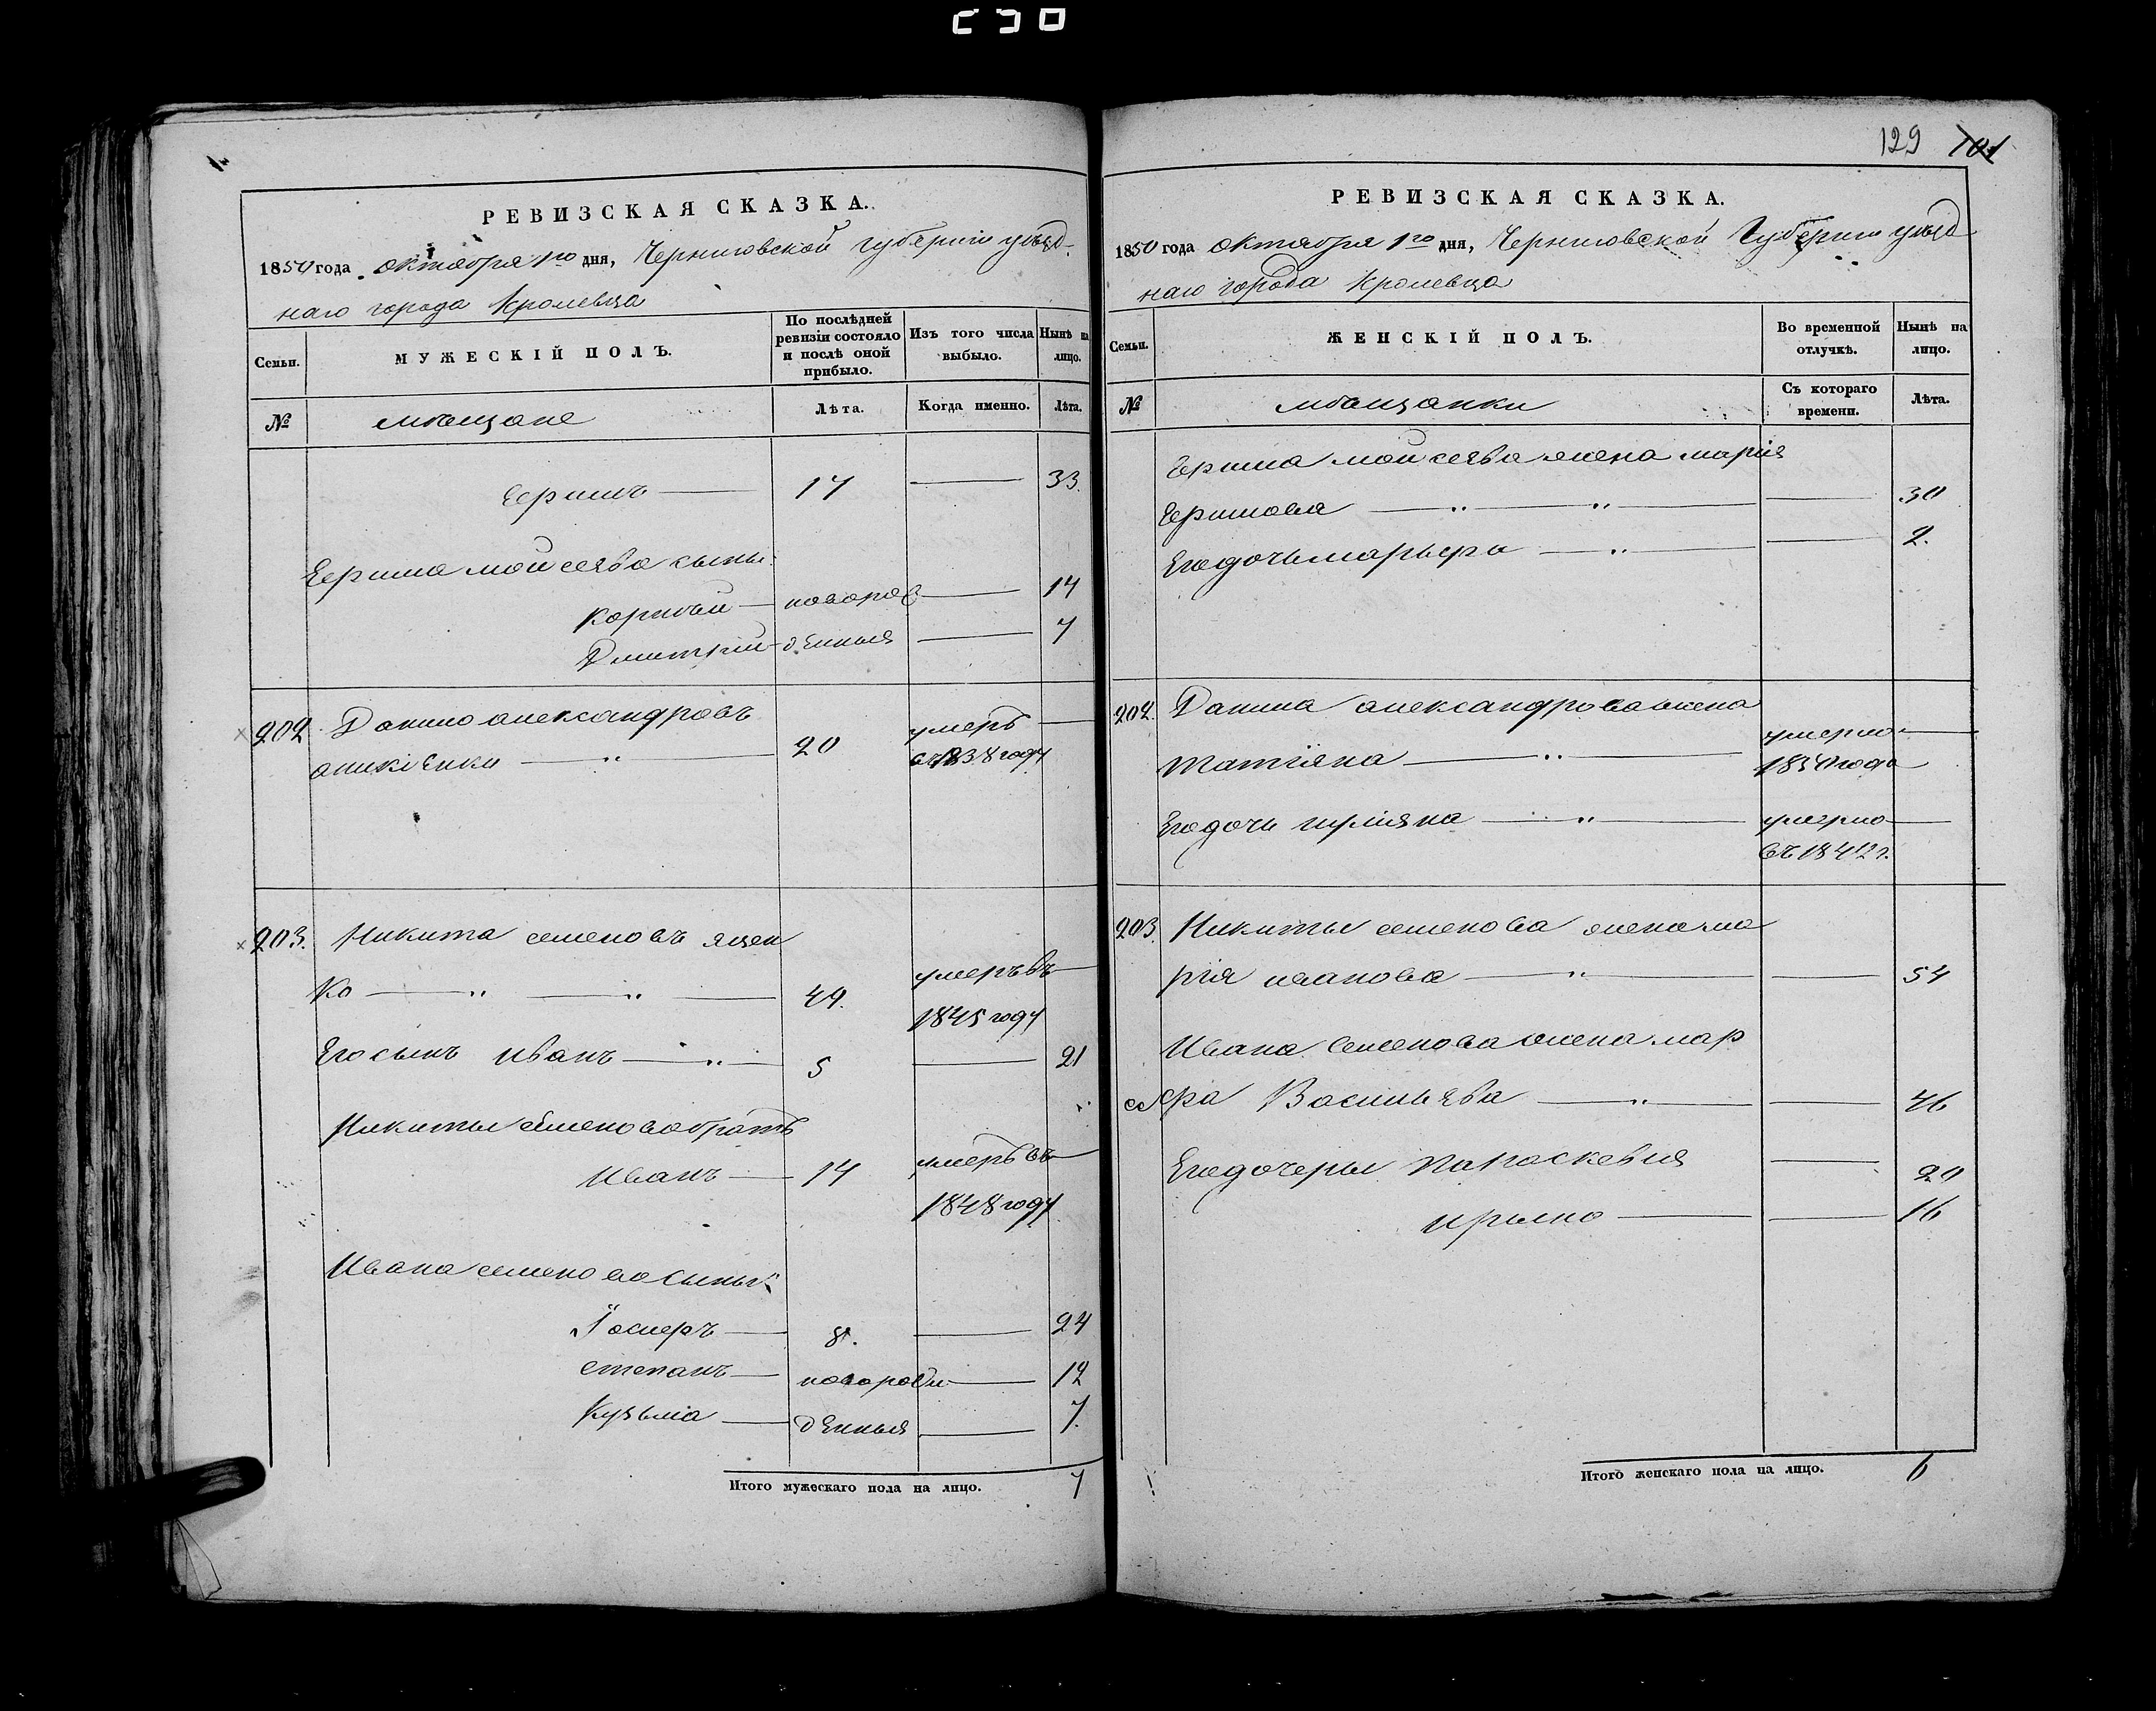 129 101
РЕВИЗСКАЯ СКАЗКА.
1850 года октября 1го дня, Черниговской губернии уезд-
наго города Кролевца
Семьи.
МУЖЕСКІЙ ПОЛЪ.
По послѣдней ревизіи состояло и послѣ оной прибыло.
Изъ того числа выбыло.
Нынѣ на лицо.
№
мѣщане
Лѣта.
Когда именно.
Лѣта.
17 — 33.
сыны
Корнѣй — новорож — 14
Дмитрій — денныя — 7
202 Данило Александровъ умеръ —
20 въ 1838 году
203. Никита Семеновъ Яцен
ко — " — " — 49. умеръ въ —
1845 году
Его сынъ Иванъ — " — 5 — 21
Никиты Семенова братъ
Иванъ — 14 умеръ въ —
1848 году
Ивана Семенова сыны
8. — 24
Степанъ — новорож — 12
Кузьма — денныя — 7.
Итого мужескаго пола на лицо. 7
РЕВИЗСКАЯ СКАЗКА.
1850 года октября 1го дня, Черниговской Губернии уезд
наго города Кролевца
Семьи.
ЖЕНСКІЙ ПОЛЪ.
Во временной отлучкѣ.
Нынѣ на лицо.
№
мѣщанки
Съ котораго времени.
Лѣта.
жена Марія
— " — " — — 30
Его дочь — " — — 2.
202. Данила Александрова жена умерла —
Татіяна — " — 1850 года
Его дочь — " — умерла —
въ 1842 г.
203. Никиты Семенова жена Ма
рія Иванова — " — — 54
Ивана Семенова жена Мар
фа Васильева — " — — 46
Его дочеры Параскевія — 20
Ирына — — 16
Итого женскаго пола на лицо. 6